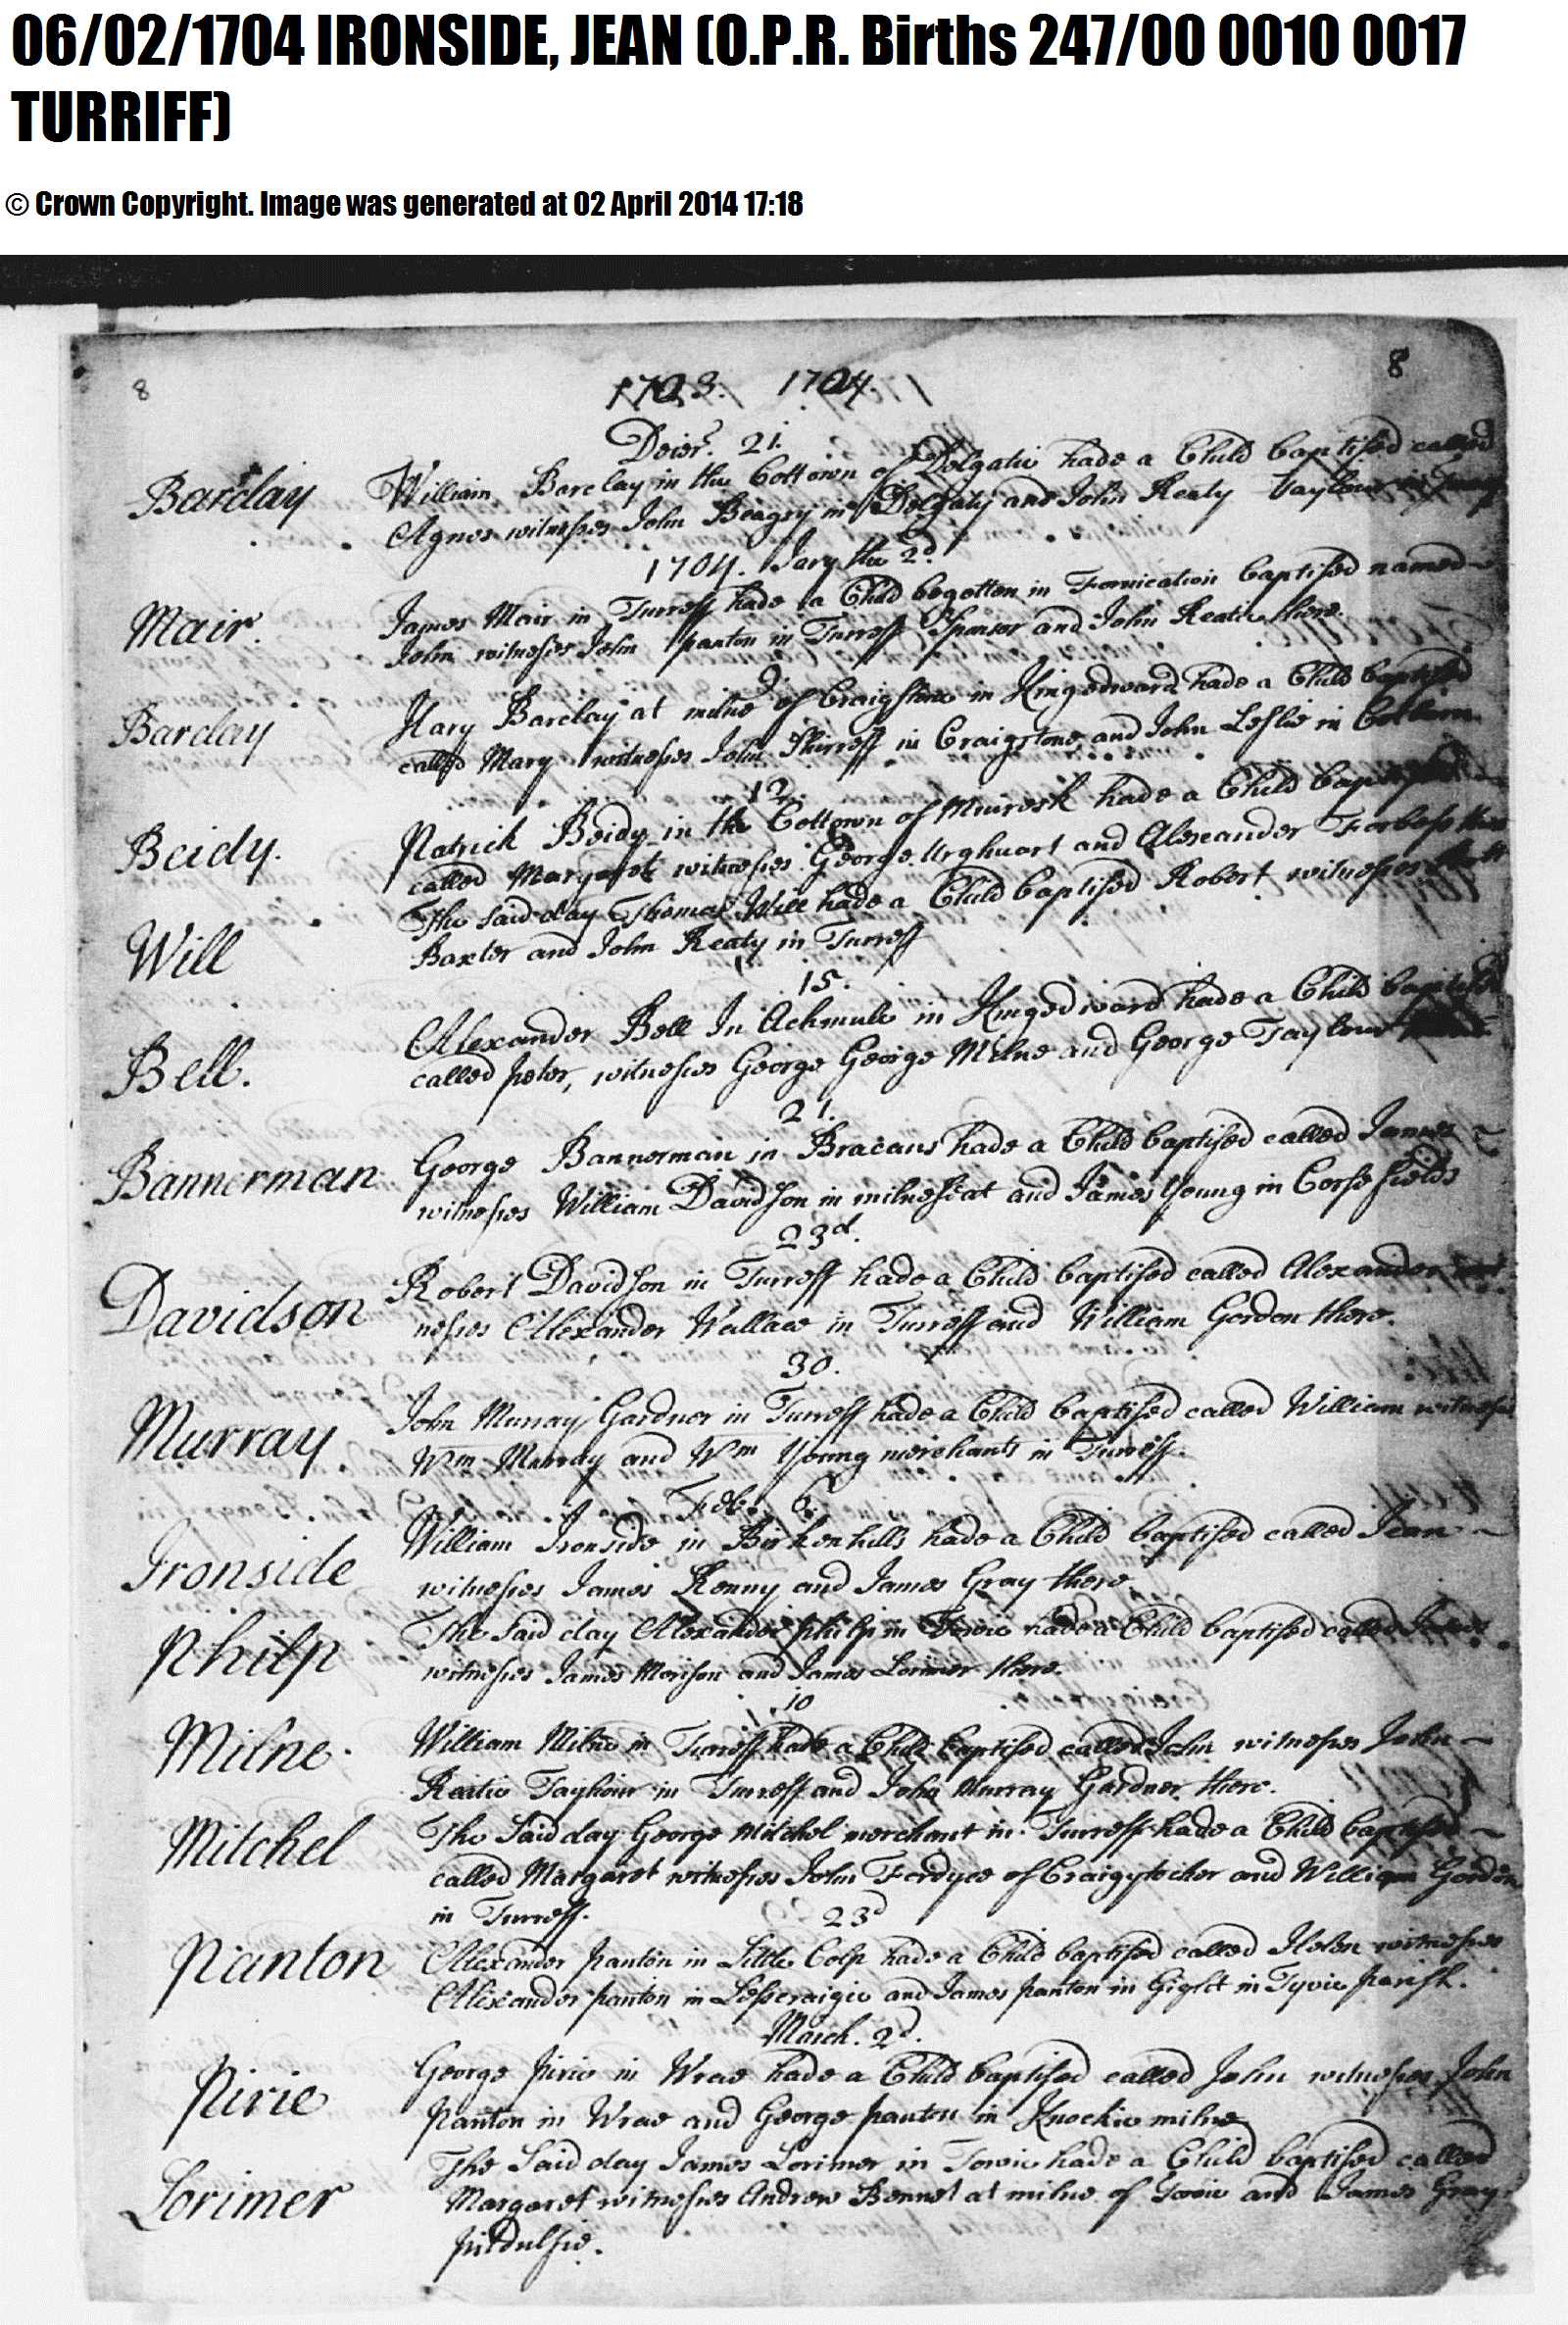 06/02/1704 IRONSIDE, JEAN (O.P.R. Births 247/00 0010 0017
TURRIFF)
© Crown Copyright. Image was generated at 02 April 2014 17:18
8 1703. 1704. 8
Decr. 21.
Barclay William Barclay in the Cottown of Dolgatie hade a Child baptised called
Agnes witnesses John in Dolgaty and John Keaty Taylour in
1704. Jary the 2d.
Mair. James Mair in Turreff hade a Child begotten in Fornication baptised named
John witnesses John panton in Turreff Sponsor and John Keatie there.
9.
Barclay Hary Barclay at milne of Craigstone in Kingedward hade a Child baptised
called Mary witnesses John Shirreff in Craigstone and John Leslie in
12.
Beidy. Patrick Beidy in the Cottown of Muiresk hade a Child baptised
called Margaret witnesses George Urghuart and Alexander Forbess
Will The said day Thomas Will hade a Child baptised Robert witnesses
Baxter and John Keaty in Turreff
15.
Bell. Alexander Bell In Achmule in Kingedward hade a Child baptised
called peter, witnesses George George Milne and George Taylour
21.
Bannerman George Bannerman in Bracans hade a Child baptised called James
witnesses William Davidson in milneseat and James Young in Corsefields
23d.
Davidson Robert Davidson in Turreff hade a Child baptised called Alexander wit
nesses Alexander Wallace in Turreff and William Gordon there.
30.
Murray John Murray Gardner in Turreff hade a Child baptised called William witnesses
Wm Murray and Wm Young merchants in Turreff.
Feb. 6.
Ironside William Ironside in Birkenhills hade a Child baptised called Jean
witnesses James Kenny and James Gray there.
Philp The said day Alexander philp in Towie hade a Child baptised called James
witnesses James Morison and James Lorimer there.
10
Milne. William Milne in Turreff hade a Child baptised called John witnesses John
Keatie Taylour in Turreff and John Murray Gardner there.
Mitchel The Said day George Mitchel merchant in Turreff hade a Child baptised
called Margaret witnesses John Fordyce of Craigytocher and William Gordon
in Turreff.
23d
Panton Alexander panton in Little Colp hade a Child baptised called Helen witnesses
Alexander panton in Lesscraigie and James panton in Gight in Fyvie parish.
March. 2d.
Pirie George pirie in Wrae hade a Child baptised called John witnesses John
panton in Wrae and George panton in Knockie milne
Lorimer The Said day James Lorimer in Towie hade a Child baptised called
Margaret witnesses Andrew Bennet at milne of Towie and James Gray